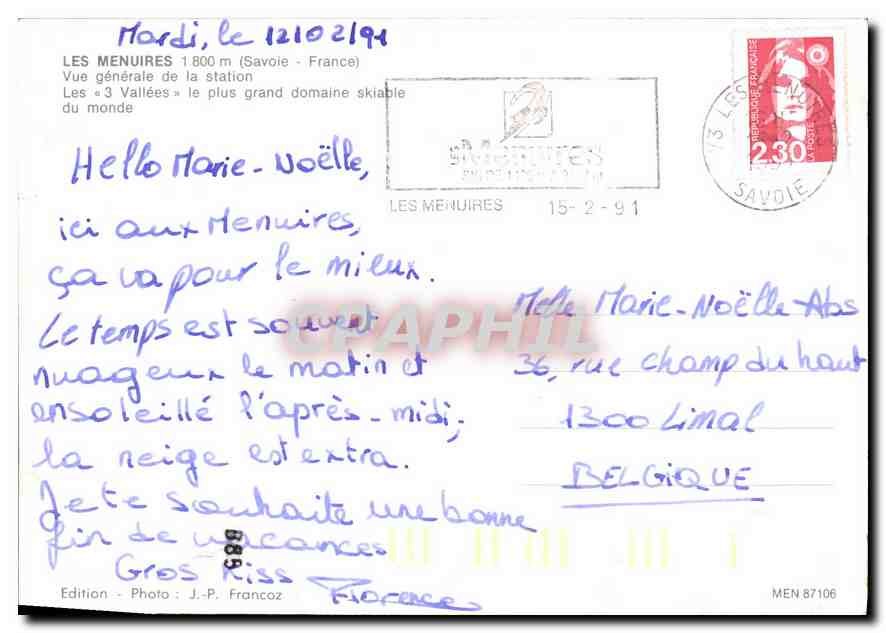 Mardi, le 12/02/91
LES MENUIRES 1 800 m (Savoie - France)
Vue générale de la station
Les « 3 Vallées » le plus grand domaine skiable
du monde
Hello Marie-Noëlle,
ici aux Menuires,
ça va pour le mieux.
Le temps est souvent
nuageux le matin et
ensoleillé l'après-midi,
la neige est extra.
Je te souhaite une bonne
fin de vacances
Gros Kiss Florence
889
Edition - Photo : J.-P. Francoz
les Menuires
LES MENUIRES 15-2-91
73 LES MENUIRES
SAVOIE
REPUBLIQUE FRANÇAISE
LA POSTE
2.30
CPAPHIL
Melle Marie-Noëlle Abs
36, rue champ du haut
1300 Limal
BELGIQUE
MEN 87106